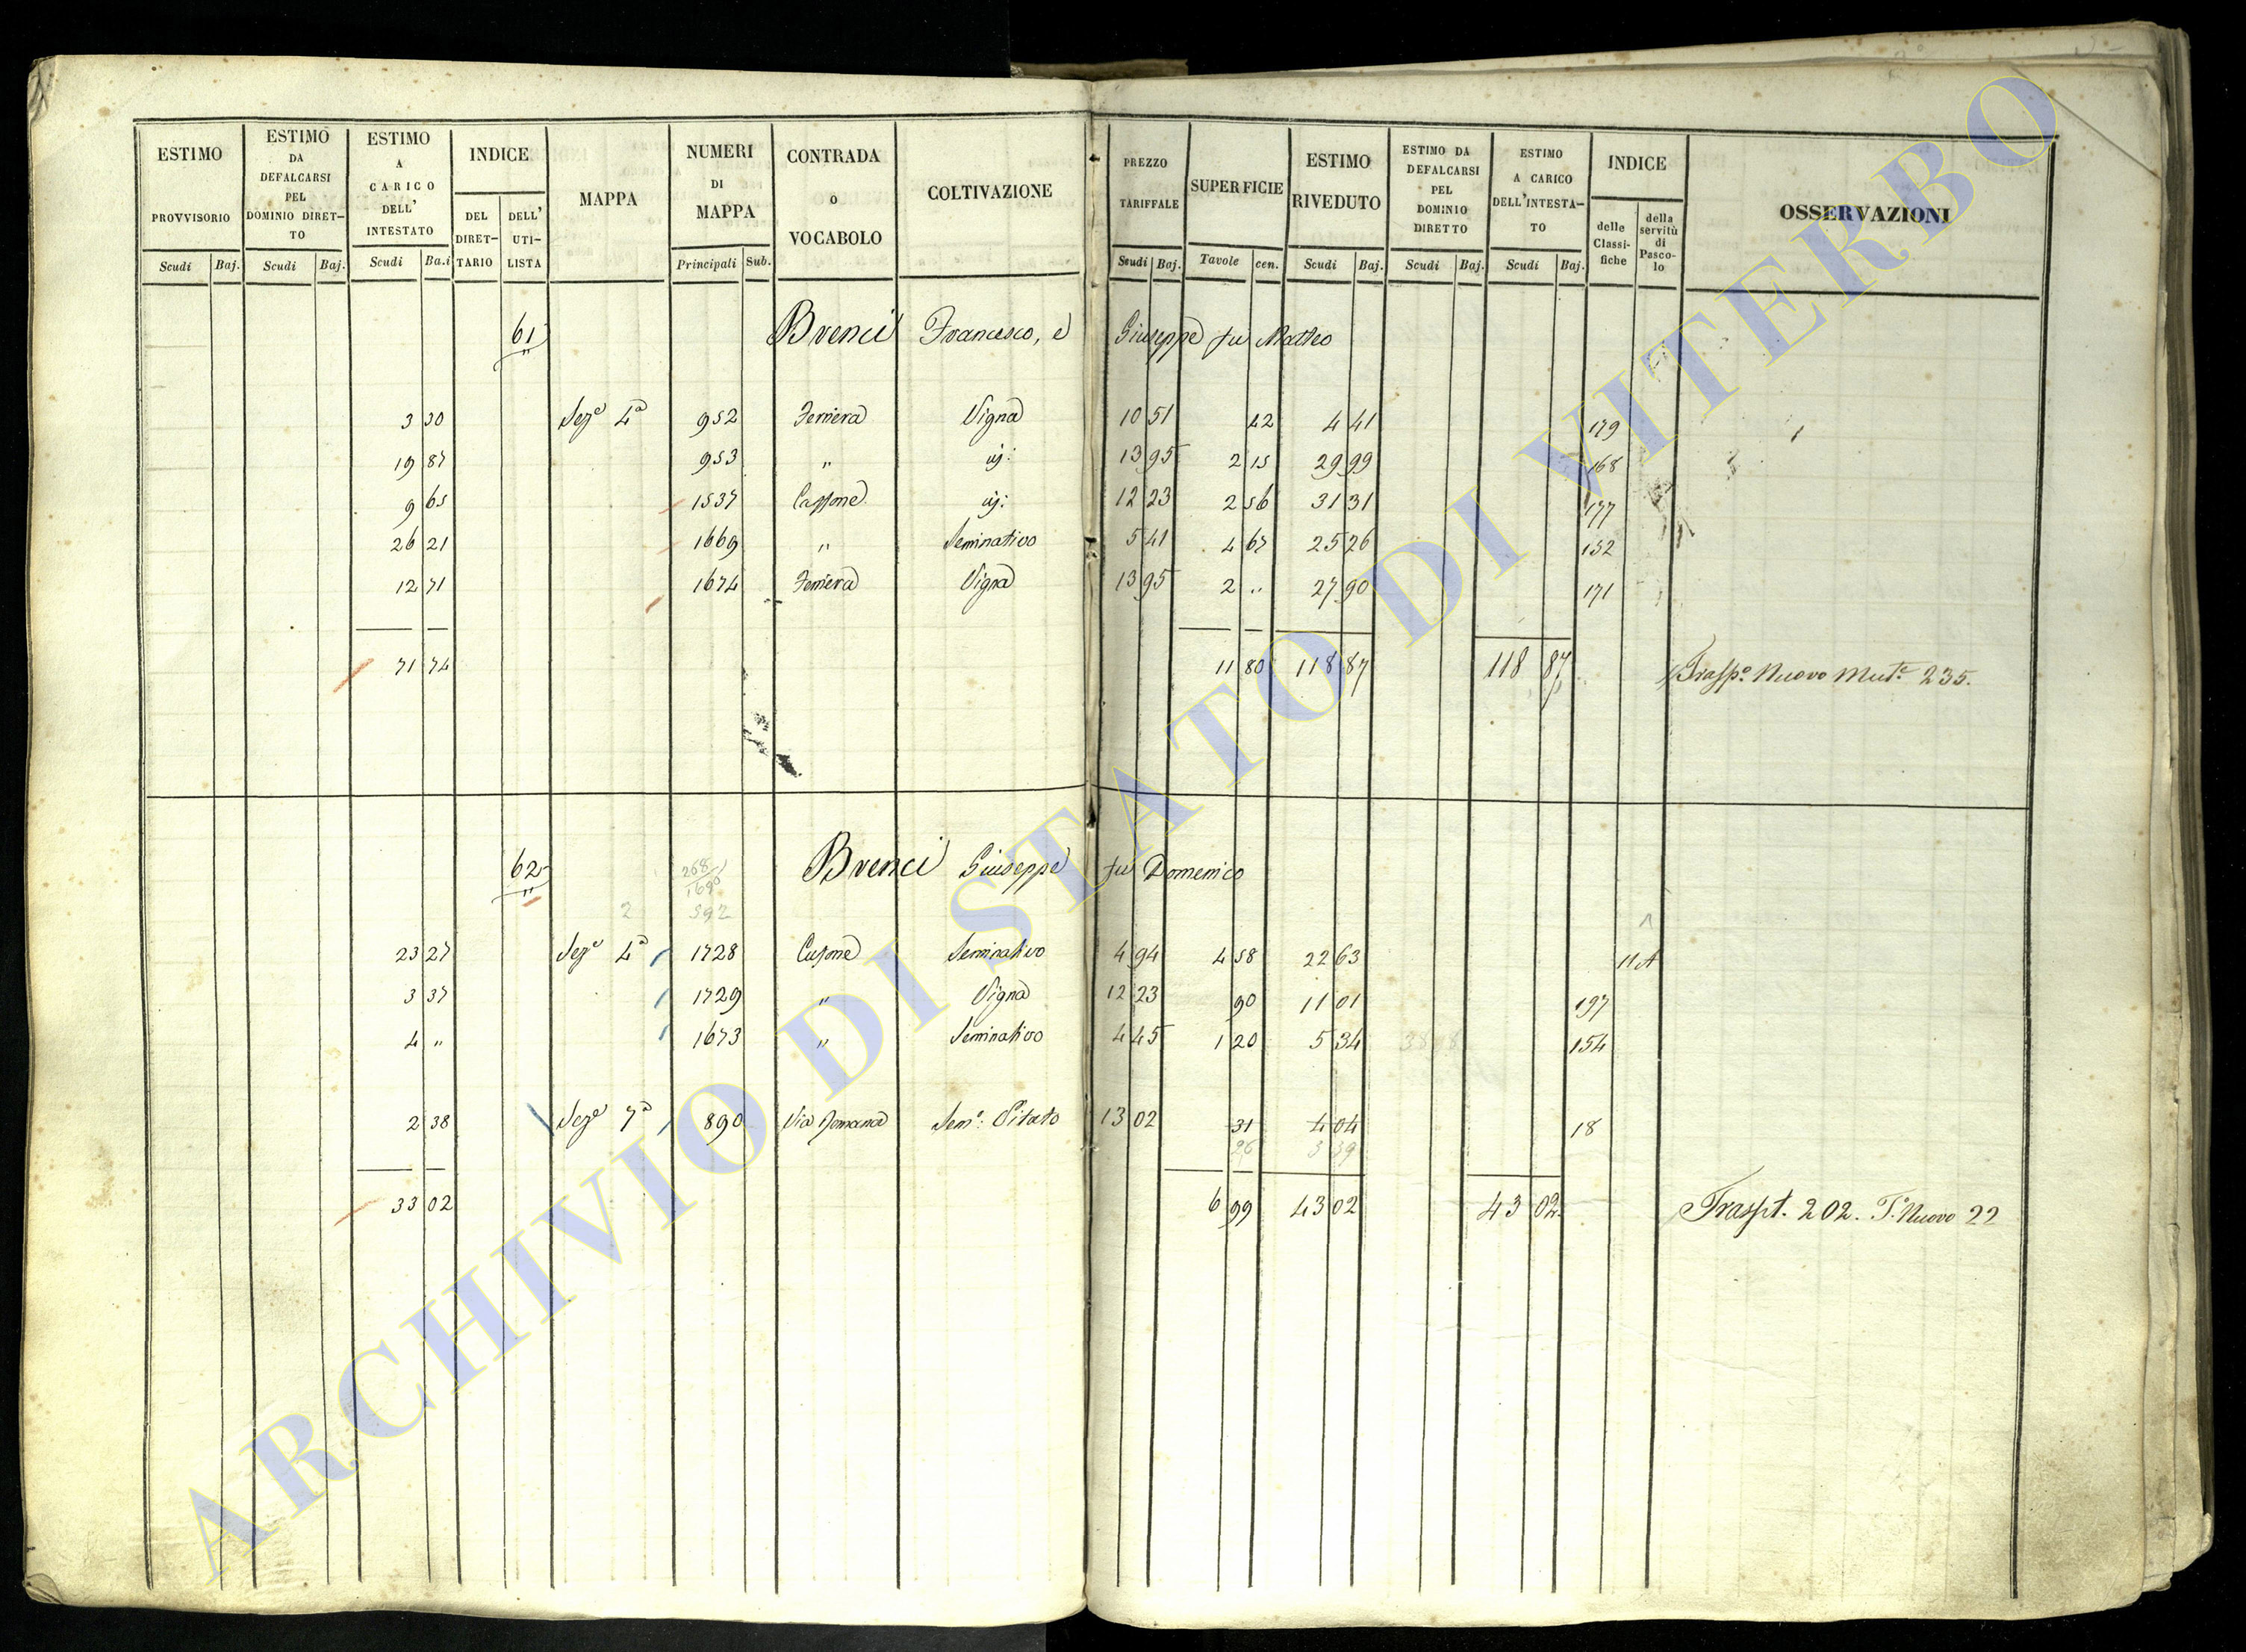 ESTIMO PROVVISORIO
Scudi Baj.
ESTIMO DA DEFALCARSI PEL DOMINIO DIRET-TO
Scudi Baj.
ESTIMO A CARICO DELL' INTESTATO
Scudi Ba.i
INDICE
DEL DIRET-TARIO
DELL' UTI-LISTA
MAPPA
NUMERI DI MAPPA
Principali Sub.
CONTRADA O VOCABOLO
COLTIVAZIONE
PREZZO TARIFFALE
Scudi Baj.
SUPERFICIE
Tavole cen.
ESTIMO RIVEDUTO
Scudi Baj.
ESTIMO DA DEFALCARSI PEL DOMINIO DIRETTO
Scudi Baj.
ESTIMO A CARICO DELL'INTESTA-TO
Scudi Baj.
INDICE
delle Classi-fiche
della servitù di Pasco-lo
OSSERVAZIONI
61 Brenci Francesco, e Giuseppe fu Matteo
3 30 Seze 4a 952 Ferriera Vigna 10 51 42 4 41 179
19 87 953 " " 13 95 2 15 29 99 168
9 65 1537 Cassone 12 23 2 56 31 31 177
26 21 1669 " Seminativo 5 41 4 67 25 26 152
12 71 1674 Ferriera Vigna 13 95 2 " 27 90 171
71 74 11 80 118 87 118 87 Trasp.o Nuovo Mut.e 235.
62 Brenci Giuseppe fu Domenico
268
1690
2 592
23 27 Seze 4a 1728 Cassone Seminativo 4 94 4 58 22 63 11 A
3 37 1729 " Vigna 12 23 90 11 01 197
4 " 1673 " Seminativo 4 45 1 20 5 34 154
2 38 Seze 7a 890 Via Romana Sem.o Vitato 13 02 31 4 04 18
26 3 39
33 02 6 99 43 02 43 02 Traspt. 202. T.o Nuovo 22
ARCHIVIO DI STATO DI VITERBO